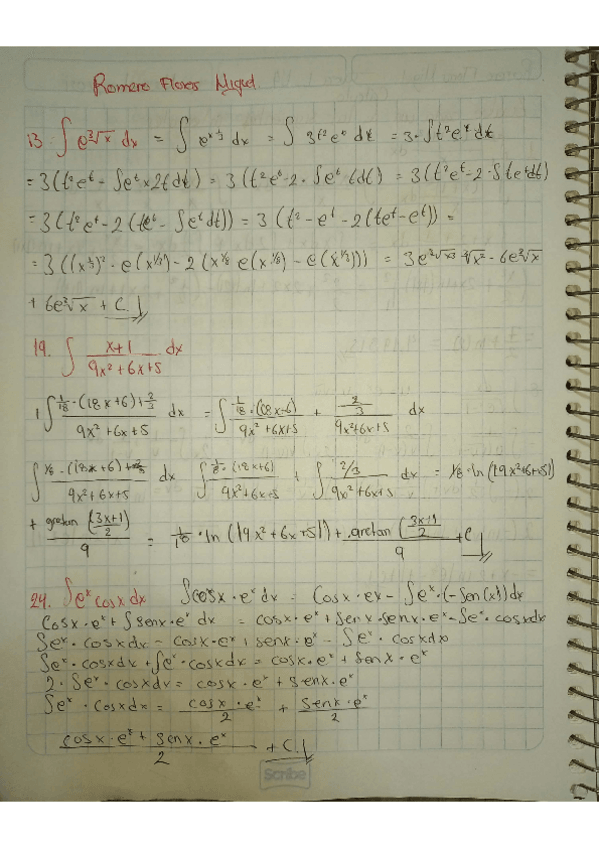 Romero Flores Miguel
13. ∫ e^∛x dx = ∫ e^x^⅓ dx = ∫ 3t²e^t dt = 3·∫t²e^t dt
= 3(t²e^t - ∫e^t x 2t dt) = 3(t²e^t - 2·∫e^t t dt) = 3(t²e^t - 2·∫te^t dt)
= 3(t²e^t - 2(te^t - ∫e^t dt)) = 3(t² - e^t - 2(te^t - e^t)) =
= 3((x^⅓)² · e(x^⅓) - 2(x^⅓ e(x^⅓) - e(x^⅓))) = 3e^∛x ∛x² - 6e^∛x
+ 6e^∛x + C
19. ∫ (x+1)/(9x²+6x+5) dx
∫ (1/18·(18x+6)+2/3)/(9x²+6x+5) dx = ∫ (1/18·(18x+6))/(9x²+6x+5) + (2/3)/(9x²+6x+5) dx
∫ (1/18·(18x+6)+2/3)/(9x²+6x+5) dx ∫ (1/18·(18x+6))/(9x²+6x+5) + ∫ (2/3)/(9x²+6x+5) dx = 1/18·ln(|9x²+6x+5|)
+ arctan((3x+1)/2)/9 = 1/18·ln(|9x²+6x+5|) + arctan((3x+1)/2)/9 + C
24. ∫e^x cosx dx ∫cosx·e^x dx = cosx·ex - ∫e^x·(-sen(x))dx
cosx·e^x + ∫senx·e^x dx = cosx·e^x + senx·senx·e^x - ∫e^x·cosxdx
∫e^x·cosxdx = cosx·e^x + senx·e^x - ∫e^x·cosxdx
∫e^x·cosxdx + ∫e^x·cosxdx = cosx·e^x + senx·e^x
2·∫e^x·cosxdx = cosx·e^x + senx·e^x
∫e^x·cosxdx = cosx·e^x/2 + senx·e^x/2
(cosx·e^x + senx·e^x)/2 + C
Scribe